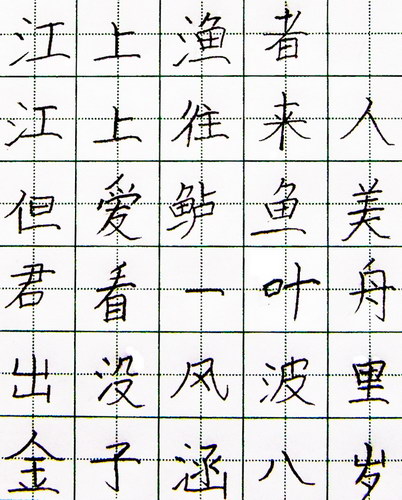 江上渔者
江上往来人
但爱鲈鱼美
君看一叶舟
出没风波里
金子涵八岁